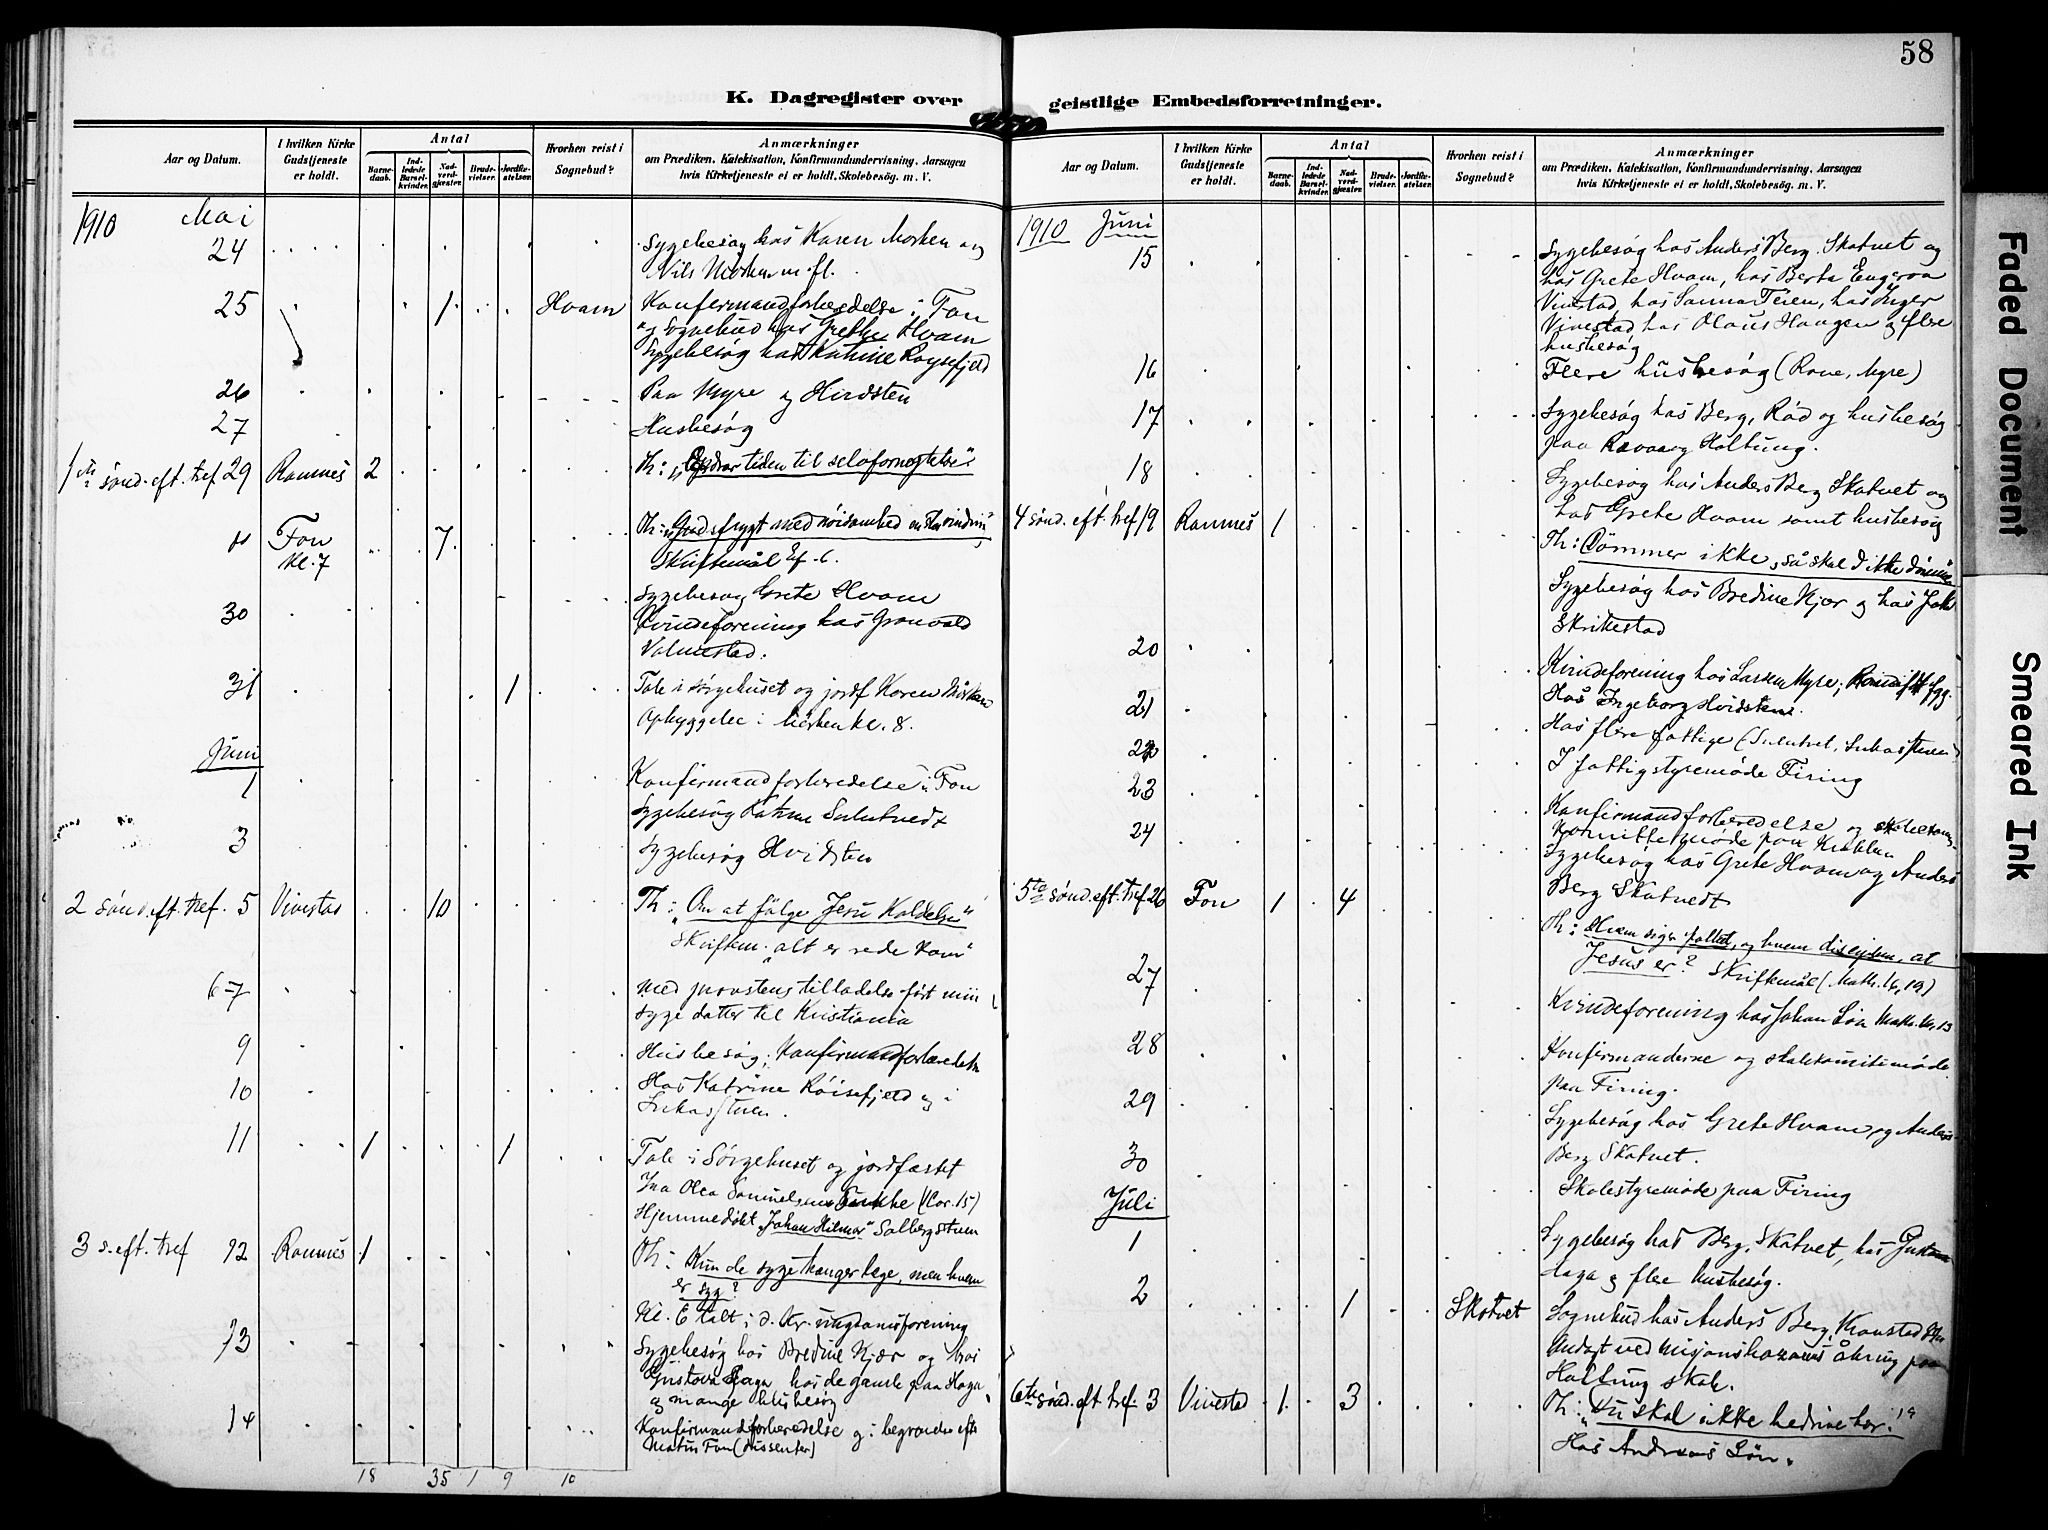 58
K. Dagregister over geistlige Embedsforretninger.
Aar og Datum.
I hvilken Kirke Gudstjeneste er holdt.
Antal
Barnedaab.
Indledede Barselkvinder.
Nadverdgjester.
Brudevielser.
Jordfæstelser.
Hvorhen reist i Sognebud?
Anmærkninger
om Prædiken, Katekisation, Konfirmandundervisning, Aarsagen
hvis Kirketjeneste ei er holdt, Skolebesøg. m. V.
1910 Mai
24 Sygebesøg hos Karen Morken og
Nils Morken m. fl.
25 1 Hvam Konfirmandforberedelse i Fon
og Sognebud hos Grethe Hvam
Sygebesøg hos Katrine Roysefjeld
26 Paa Myre og Hvidsten
27 Husbesøg
1ste sønd. eft. tref 29 Ramnes 2 Th: "Opdrar tiden til selvfornegtelse"
" Fon kl. 7 7 Th: "Gudsfrygt med nøisomhed en stor vinding"
Skriftemål Ef. 6.
30 Sygebesøg Grete Hvam
Kvindeforening hos Gronvold
Valmestad.
31 1 Tale i sørgehuset og jordf Karen Morken
Opbyggelse i kirken kl. 8.
Juni
1 Konfirmandforberedelse i Fon
Sygebesøg Katrine Sulutvedt
3 Sygebesøg Hvidsten
2 sønd. eft. tref. 5 Vivestad 10 Th: "Om at følge Jesu Kaldelse"
Skriftem. "alt er rede kom"
6-7 Med provstens tilladelse ført min
syge datter til Kristiania
9 Husbesøg; Konfirmandforberedelse
10 Hos Katrine Røisefjeld og i
Lukasstuen.
11 1 1 Tale i Sørgehuset og jordfæstet
Ina Olea Samuelsen (1 Cor. 15)
Hjemmedøbt "Johan Hilmar" Solbergstuen
3 s. eft. tref 12 Ramnes 1 Th: Kun de syge trænger læge, men hvem
er syg?
Kl. 6 talt i d. kr. ungdomsforening
13 Sygebesøg hos Bredine Kjær og hos
Gustava Haga hos de gamle paa Haga
og mange husbesøg
14 Konfirmandforberedelse og i begravelse efter
Fon (dissenter)
18 35 1 9 10
Aar og Datum.
I hvilken Kirke Gudstjeneste er holdt.
Antal
Barnedaab.
Indledede Barselkvinder.
Nadverdgjester.
Brudevielser.
Jordfæstelser.
Hvorhen reist i Sognebud?
Anmærkninger
om Prædiken, Katekisation, Konfirmandundervisning, Aarsagen
hvis Kirketjeneste ei er holdt, Skolebesøg. m. V.
1910 Juni
15 Sygebesøg hos Anders Berg. Skatvet og
hos Grete Hvam, hos Berta Engeroa
Vivestad, hos Sanna Teien, hos Inger
Vivestad hos Olaus Haugen og flere
husbesøg
16 Flere husbesøg (Rove, Myre)
17 Sygebesøg hos Berg, Råd og husbesøg
paa Ravaa og Holtung.
18 Sygebesøg hos Anders Berg Skatvet og
hos Grete Hvam samt husbesøg
4 sønd. eft. tref 19 Ramnes 1 Th: "Dømmer ikke, så skal I ikke dømmes"
Sygebesøg hos Bredine Kjær og hos Jak
Skrikestad
20 Kvindeforening hos Larsen Myre;
21 Hos Ingeborg Hvidsten.
22 Hos flere fattige (Sulutvet, Lukasstuen)
23 I fattigstyremøde Firing
24 Konfirmandforberedelse og skole
komittemøde paa Krakken
Sygebesøg hos Grete Hvam og Anders
Berg Skatvedt
5te sønd. eft. tref 26 Fon 1 4 Th: Hvem siger folket, og hvem disciplene, at
Jesus er? Skriftemål (Math. 16, 19)
27 Kvindeforening hos Johan Løn
28 Konfirmanderne og skolekomitemøde
paa Firing.
29 Sygebesøg hos Grete Hvam og Anders
Berg Skatvet.
30 Skolestyremøde paa Firing
Juli
1 Sygebesøg hos Berg, Skatvet, hos Gustava
Haga og flere husbesøg.
2 1 Skatvet Sognebud hos Anders Berg,
Andagt ved misjonshærens åbning paa
Holtung skole.
6te sønd. eft tref. 3 Vivestad 1 3 Th: "Du skal ikke bedrive hor."
Hos Andreas Løn.
Faded Document
Smeared Ink